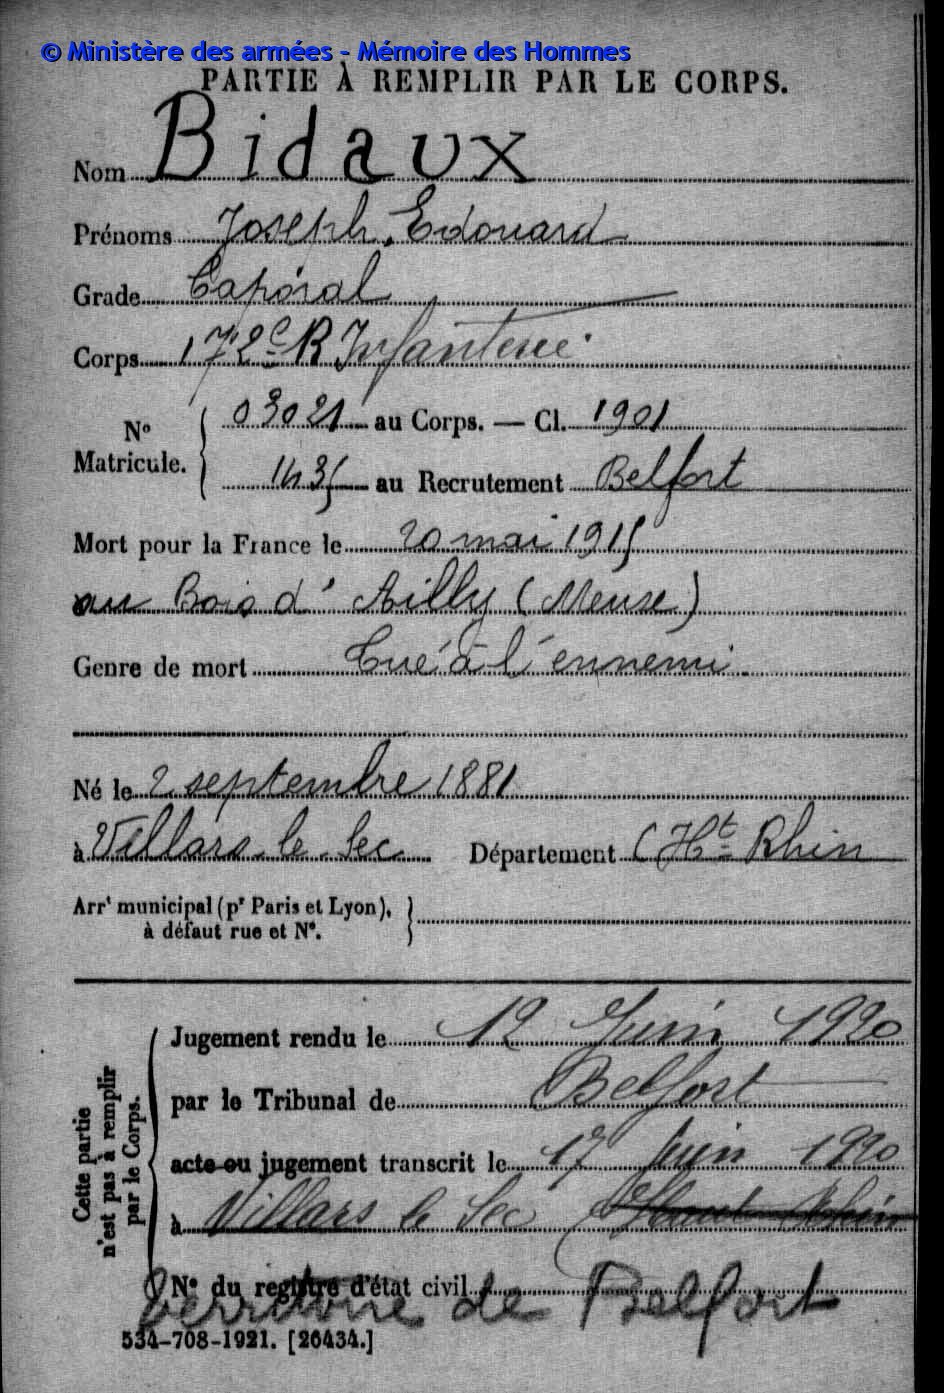 © Ministère des armées - Mémoire des Hommes
PARTIE À REMPLIR PAR LE CORPS.
Nom Bidaux
Prénoms Joseph, Edouard
Grade Caporal
Corps 172e R Infanterie
N° Matricule. 03021 au Corps. — Cl. 1901
1435 au Recrutement Belfort
Mort pour la France le 20 mai 1915
au Bois d'Ailly (Meuse)
Genre de mort Tué à l'ennemi
Né le 2 septembre 1881
à Villars le Sec Département (Ht Rhin
Arrt municipal (pr Paris et Lyon),
à défaut rue et N°.
Cette partie
n'est pas à remplir
par le Corps.
Jugement rendu le 12 Juin 1920
par le Tribunal de Belfort
acte ou jugement transcrit le 17 Juin 1920
à Villars le Sec Haut Rhin
N° du registre d'état civil
Territoire de Belfort
534-708-1921. [26434.]